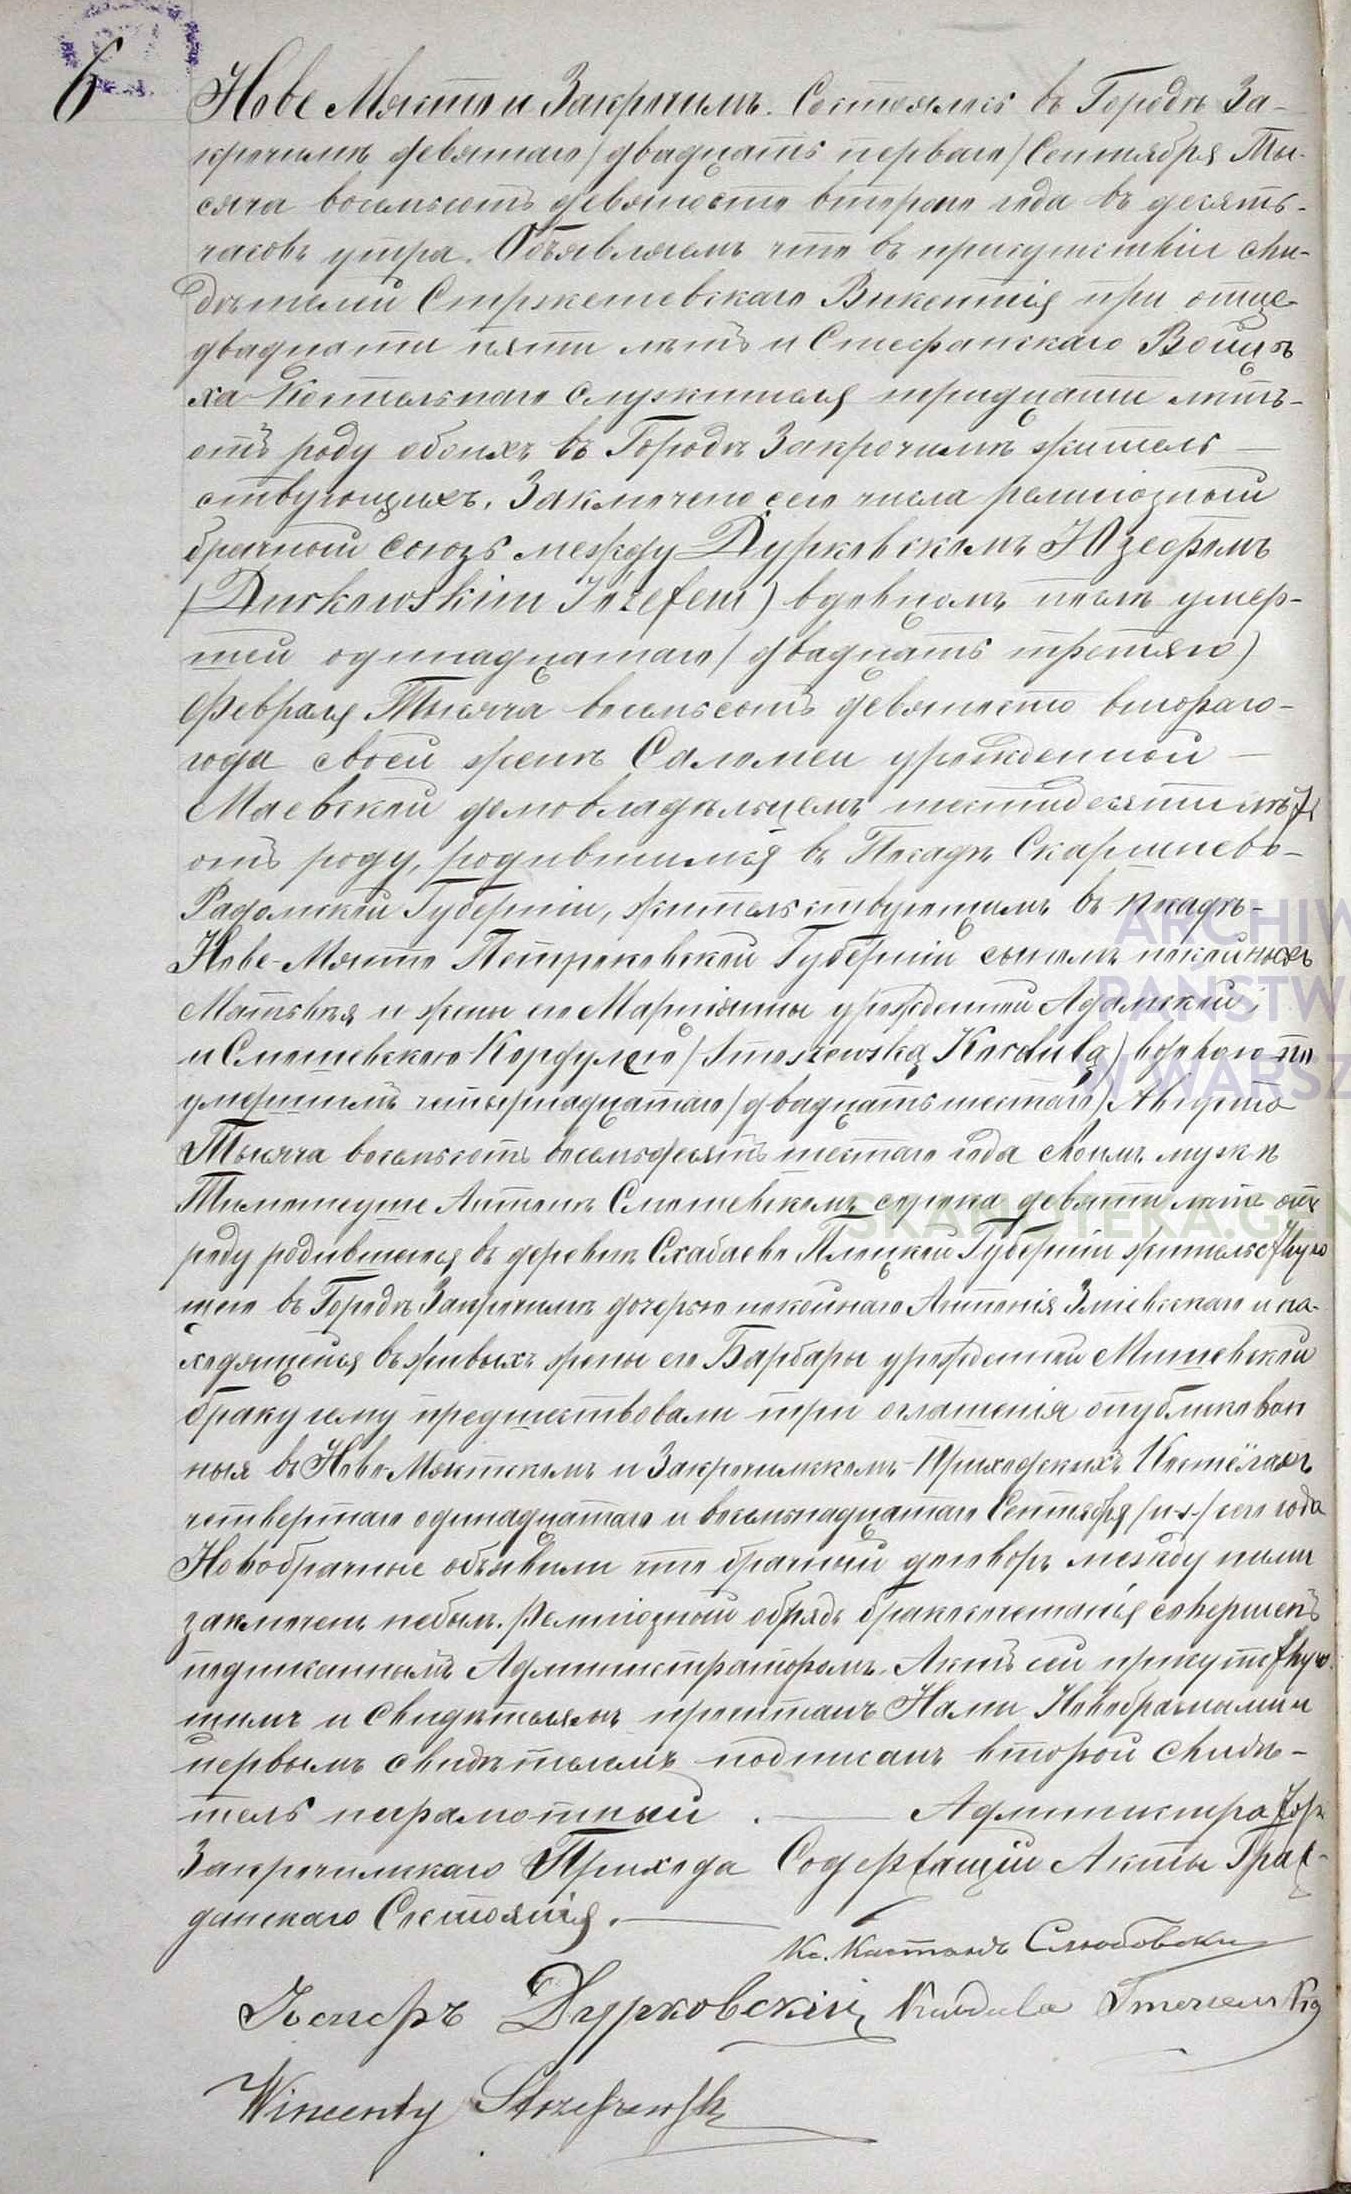 6
Нове Място и Закрочимъ. Состоялось въ Городѣ За-
крочимѣ девятаго / двадцать перваго / Сентября Ты-
сяча восемьсотъ девяносто втораго года въ десять
часовъ утра. Объявляемъ что въ присутствіи сви-
дѣтелей Стржешевскаго Викентія при отце
двадцати пяти лѣтъ и Стефанскаго Войцѣ
ха Костельнаго служителя тридцати лѣтъ-
отъ роду обоихъ въ Городѣ Закрочимѣ житель
ствующихъ. Заключено сего числа религіозный
брачный союзъ между Дурковскимъ Юзефомъ
(Durkowskim Józefem) вдовцомъ послѣ умер-
шей одинадцатаго / двадцать третяго)
Февраля Тысяча восемьсотъ девяносто втораго-
года своей женѣ Саломеи урожденной
Маевской домовладѣльцемъ шестидесяти лѣтъ
отъ роду, родившимся въ Посадѣ Скаришевъ-
Радомской Губерніи, жительствующимъ въ посадѣ-
Нове-Място Петроковской Губерніи сыномъ покойныхъ
Матвѣя и жены его Маріянны урожденной Адамской,
и Смошевскою Кордулею / Smoszewską Kordulą) вдовою по
умершимъ четырнадцатаго / двадцать шестаго) Августа
Тысяча восемьсотъ восемьдесятъ шестаго года своимъ мужѣ
Тимотеуше Антонѣ Смошевскомъ сорока девяти лѣтъ отъ
роду родившеюся въ деревнѣ Схабаево Плоцкой Губерніи жительствую
щею въ Городѣ Закрочимѣ дочерью покойнаго Антонія Зміевскаго и на-
ходящейся въ живыхъ жены его Барбары урожденной Мишевской
браку сему предшествовали три оглашенія опубликован
ныя въ Ново Мястскомъ и Закрочимскомъ Приходскихъ Костёлахъ
четвертаго одинадцатаго и восемьнадцатаго Сентября /н.s./ сего года
Новобрачные объявили что брачный договоръ между ними
заключенъ небылъ. Религіозный обрядъ бракосочетанія совершенъ
подписаннымъ Администраторомъ. Актъ сей присутствую-
щимъ и свидѣтелямъ прочитанъ Нами Новобрачными и
первымъ свидѣтелемъ подписанъ второй свидѣ-
тель неграмотный. Администраторъ
Закрочимскаго Прихода Содержащій Акты Граж-
данскаго Состоянія.
Кс. Слюбовски
Дурковскій Kordula Smoszewska
Wincenty Strzeszewski
ARCHIW
PAŃSTW
W WARSZ
SKANOTEKA.GEN